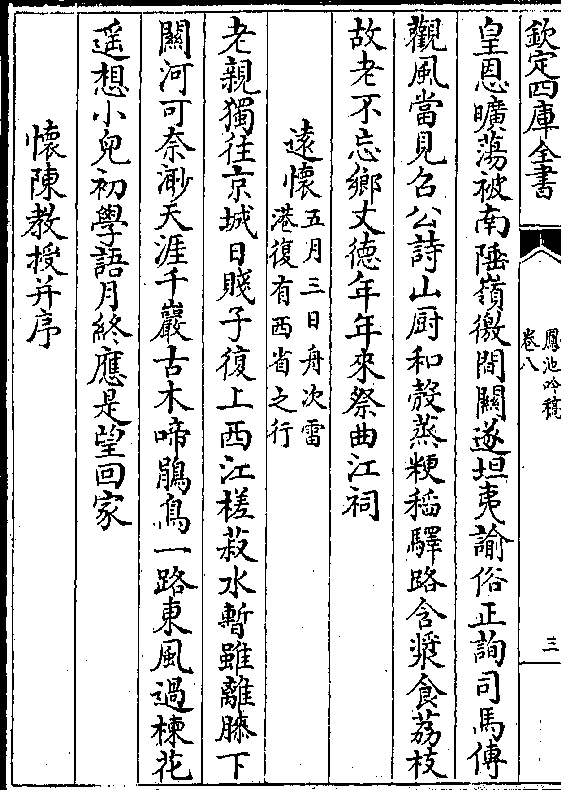 欽定四庫全書
鳳池吟稿
卷八
三
皇恩曠蕩被南陲嶺徼間關遂坦夷諭俗正詢司馬傳
觀風當見召公詩山厨和殼蒸粳稻驛路含漿食荔枝
故老不忘鄉丈德年年來祭曲江祠
遠懷五月三日舟次雷
港復有西省之行
老親獨往京城日賤子復上西江槎菽水暫雖離膝下
關河可奈渺天涯千巖古木啼鵑鳥一路東風過楝花
遥想小兒初學語月終應是望回家
懷陳教授并序